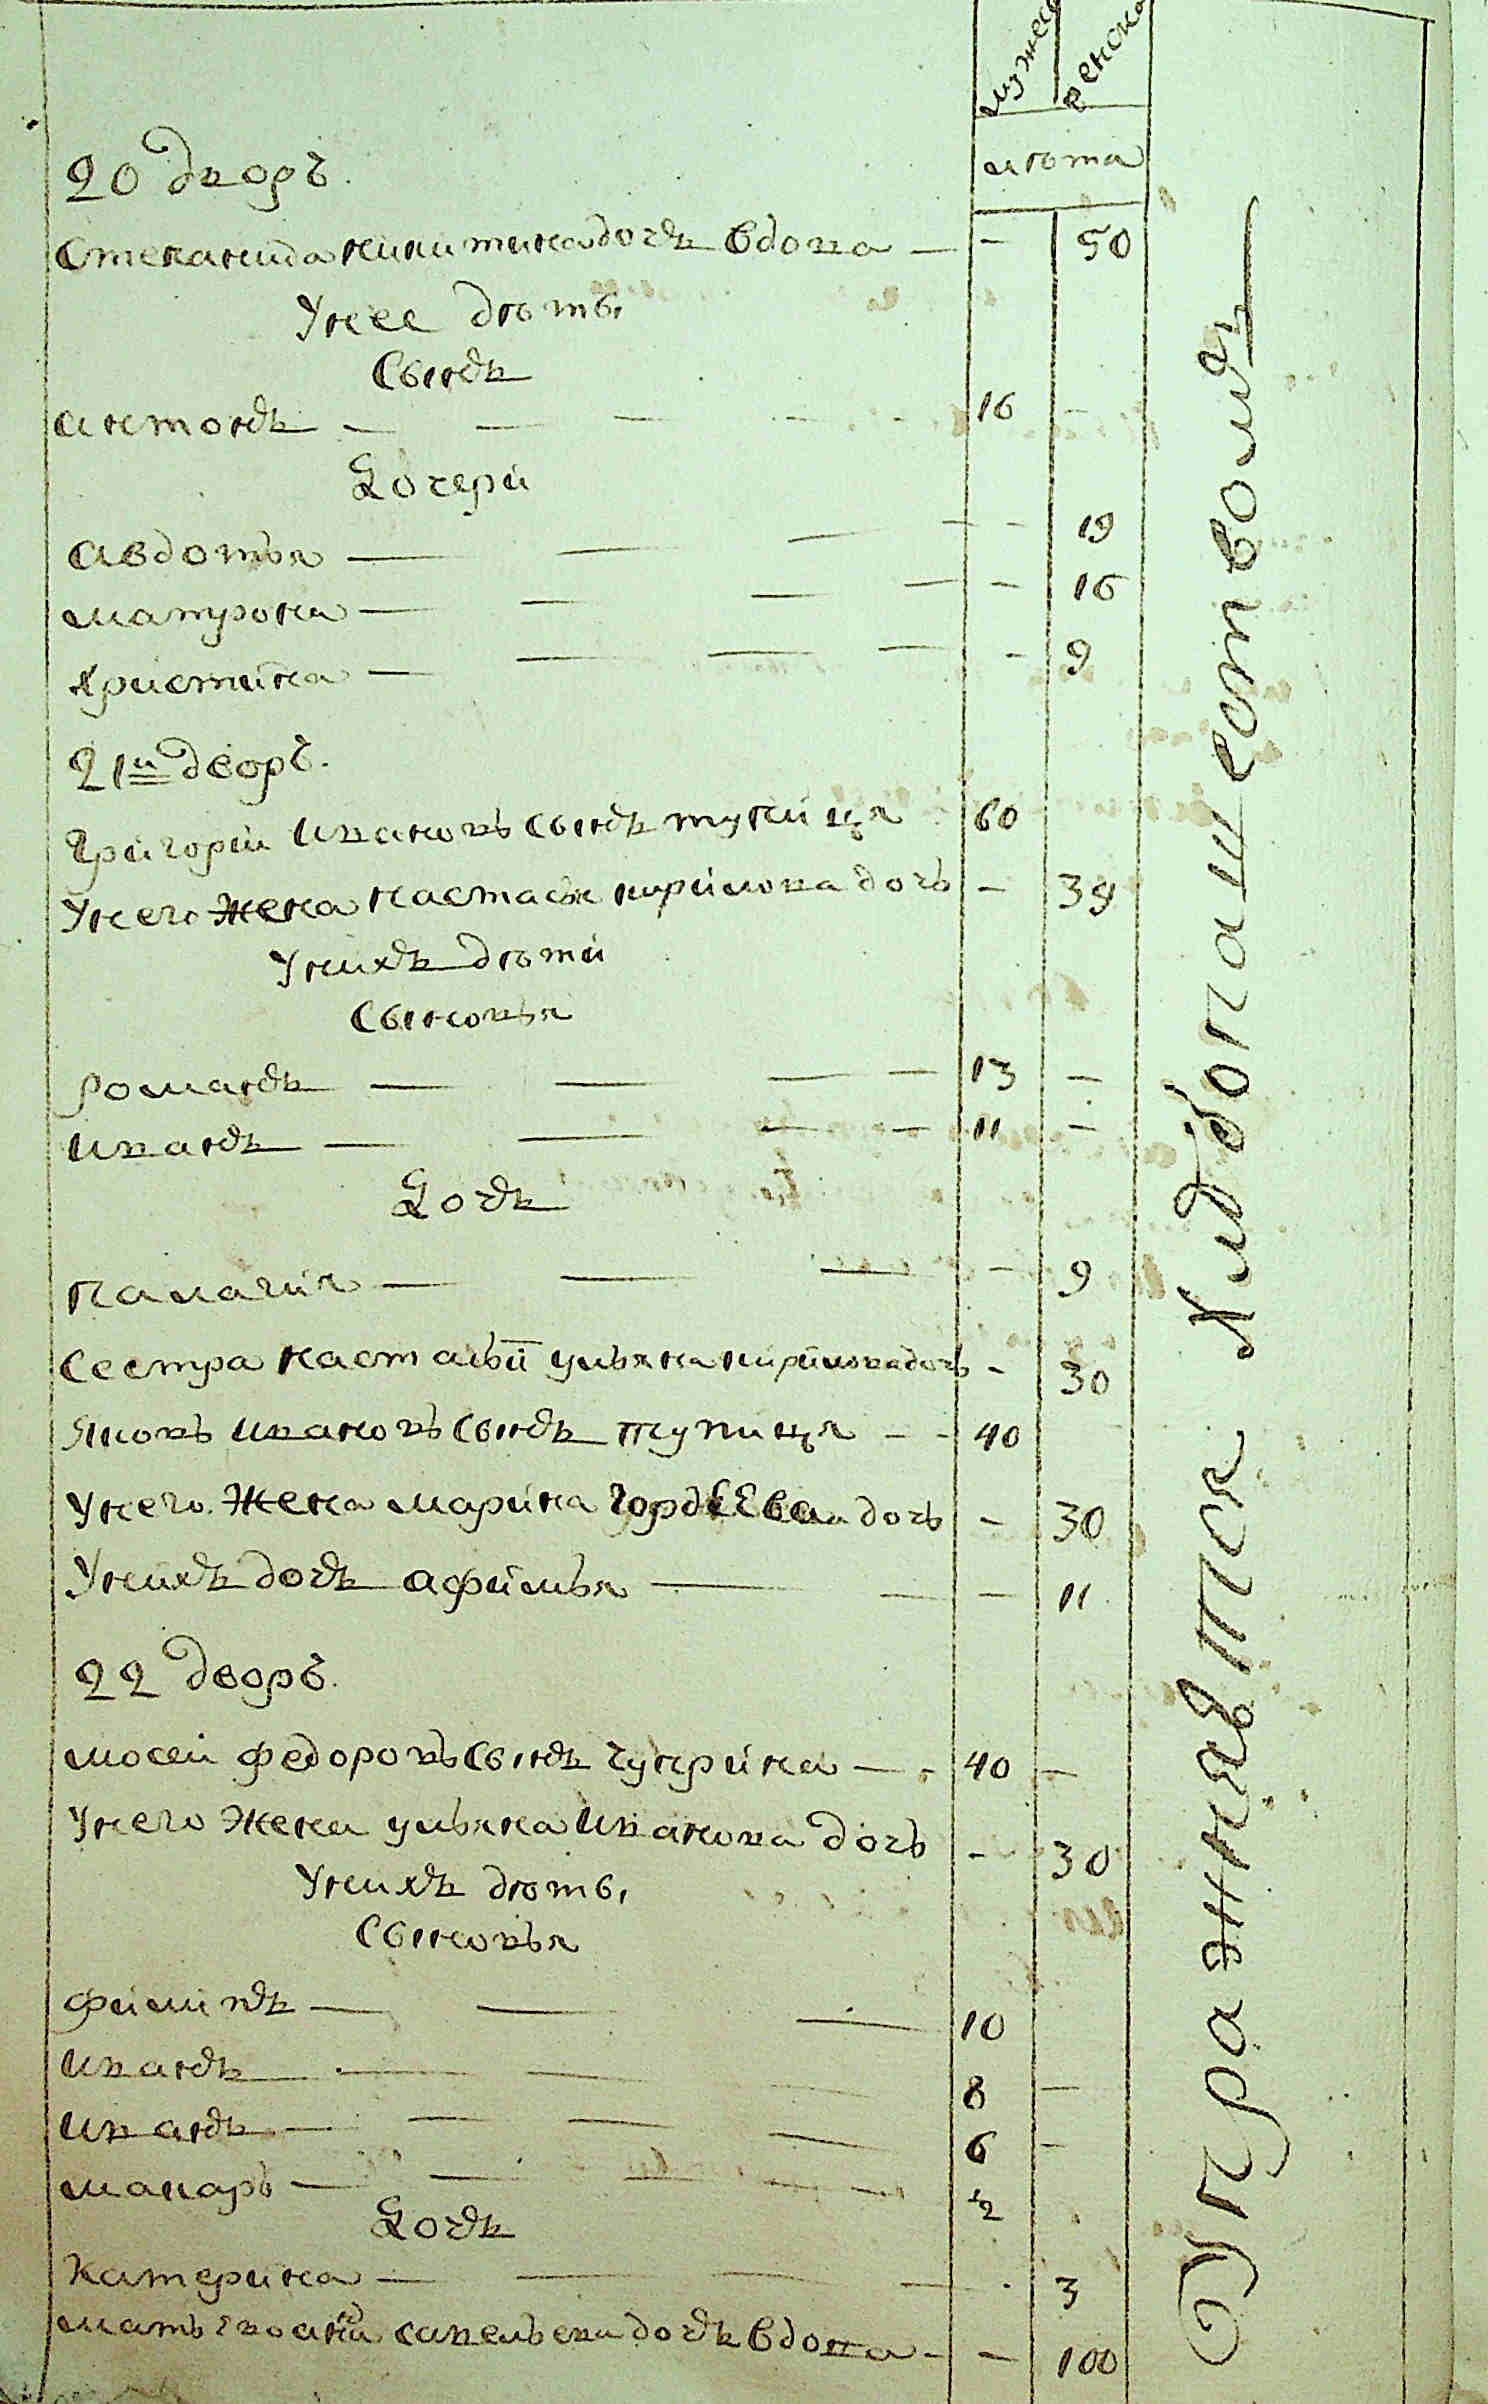 мужеска
женска
лѣта
20 дворъ.
Степанида никитина дочъ вдова — - 50
У нее дѣты
Сынъ
антонъ — 16 -
Дочери
Авдотья — - 19
матрона — - 16
христина — - 9
21й дворъ.
Григорей Ивановъ сынъ тупица 60
У него жена настасья кирилова дочь - 39
У нихъ дѣти
Сыновья
романъ — 13 -
иванъ — 11 -
Дочъ
палагия — - 9
Сестра настасьи ульяна кирилова дочь - 30
Яковъ ивановъ сынъ тупица - 40
У него жена марина гордѣева дочь - 30
У нихъ дочъ афимья — - 11
22 дворъ.
мосей федоровъ сынъ чуприна — 40 -
У него жена ульяна Иванова дочь - 30
У нихъ дѣты
Сыновья
филипъ — 10
иванъ — 8 -
иванъ — 6 -
макаръ — ½
Дочъ
катерина — 3
мать савельева дочъ вдова - - 100
Упражняется хлѣбопашествомъ